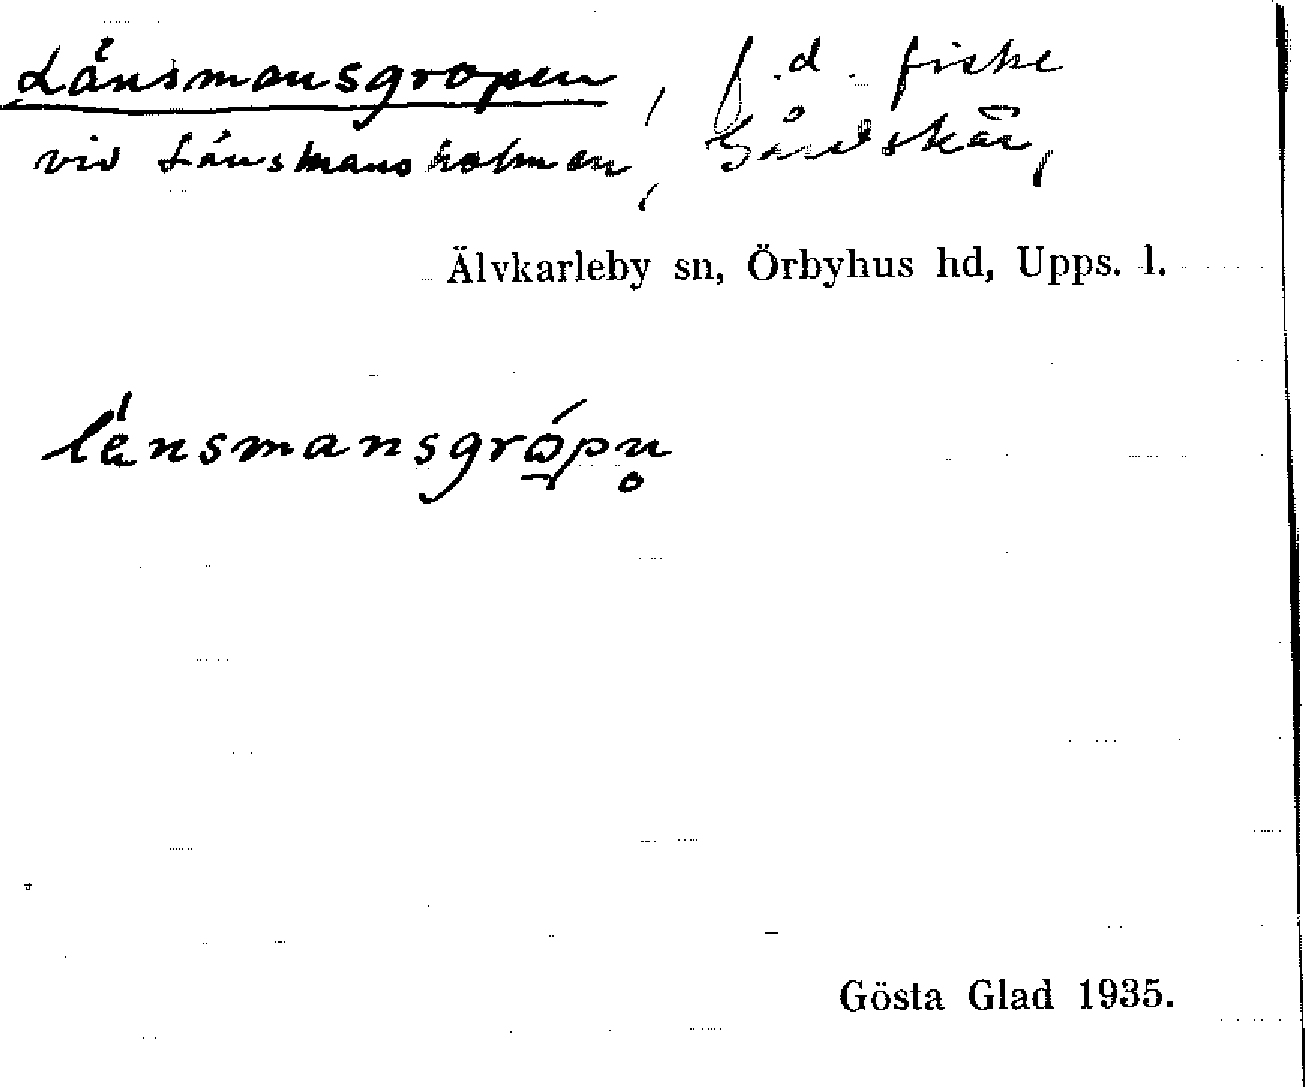 Länsmansgropen, f.d. fiske
vid Länsmansholmen, Gårdskär,
Älvkarleby sn, Örbyhus hd, Upps. l.
lénsmansgrópn̥
Gösta Glad 1935.